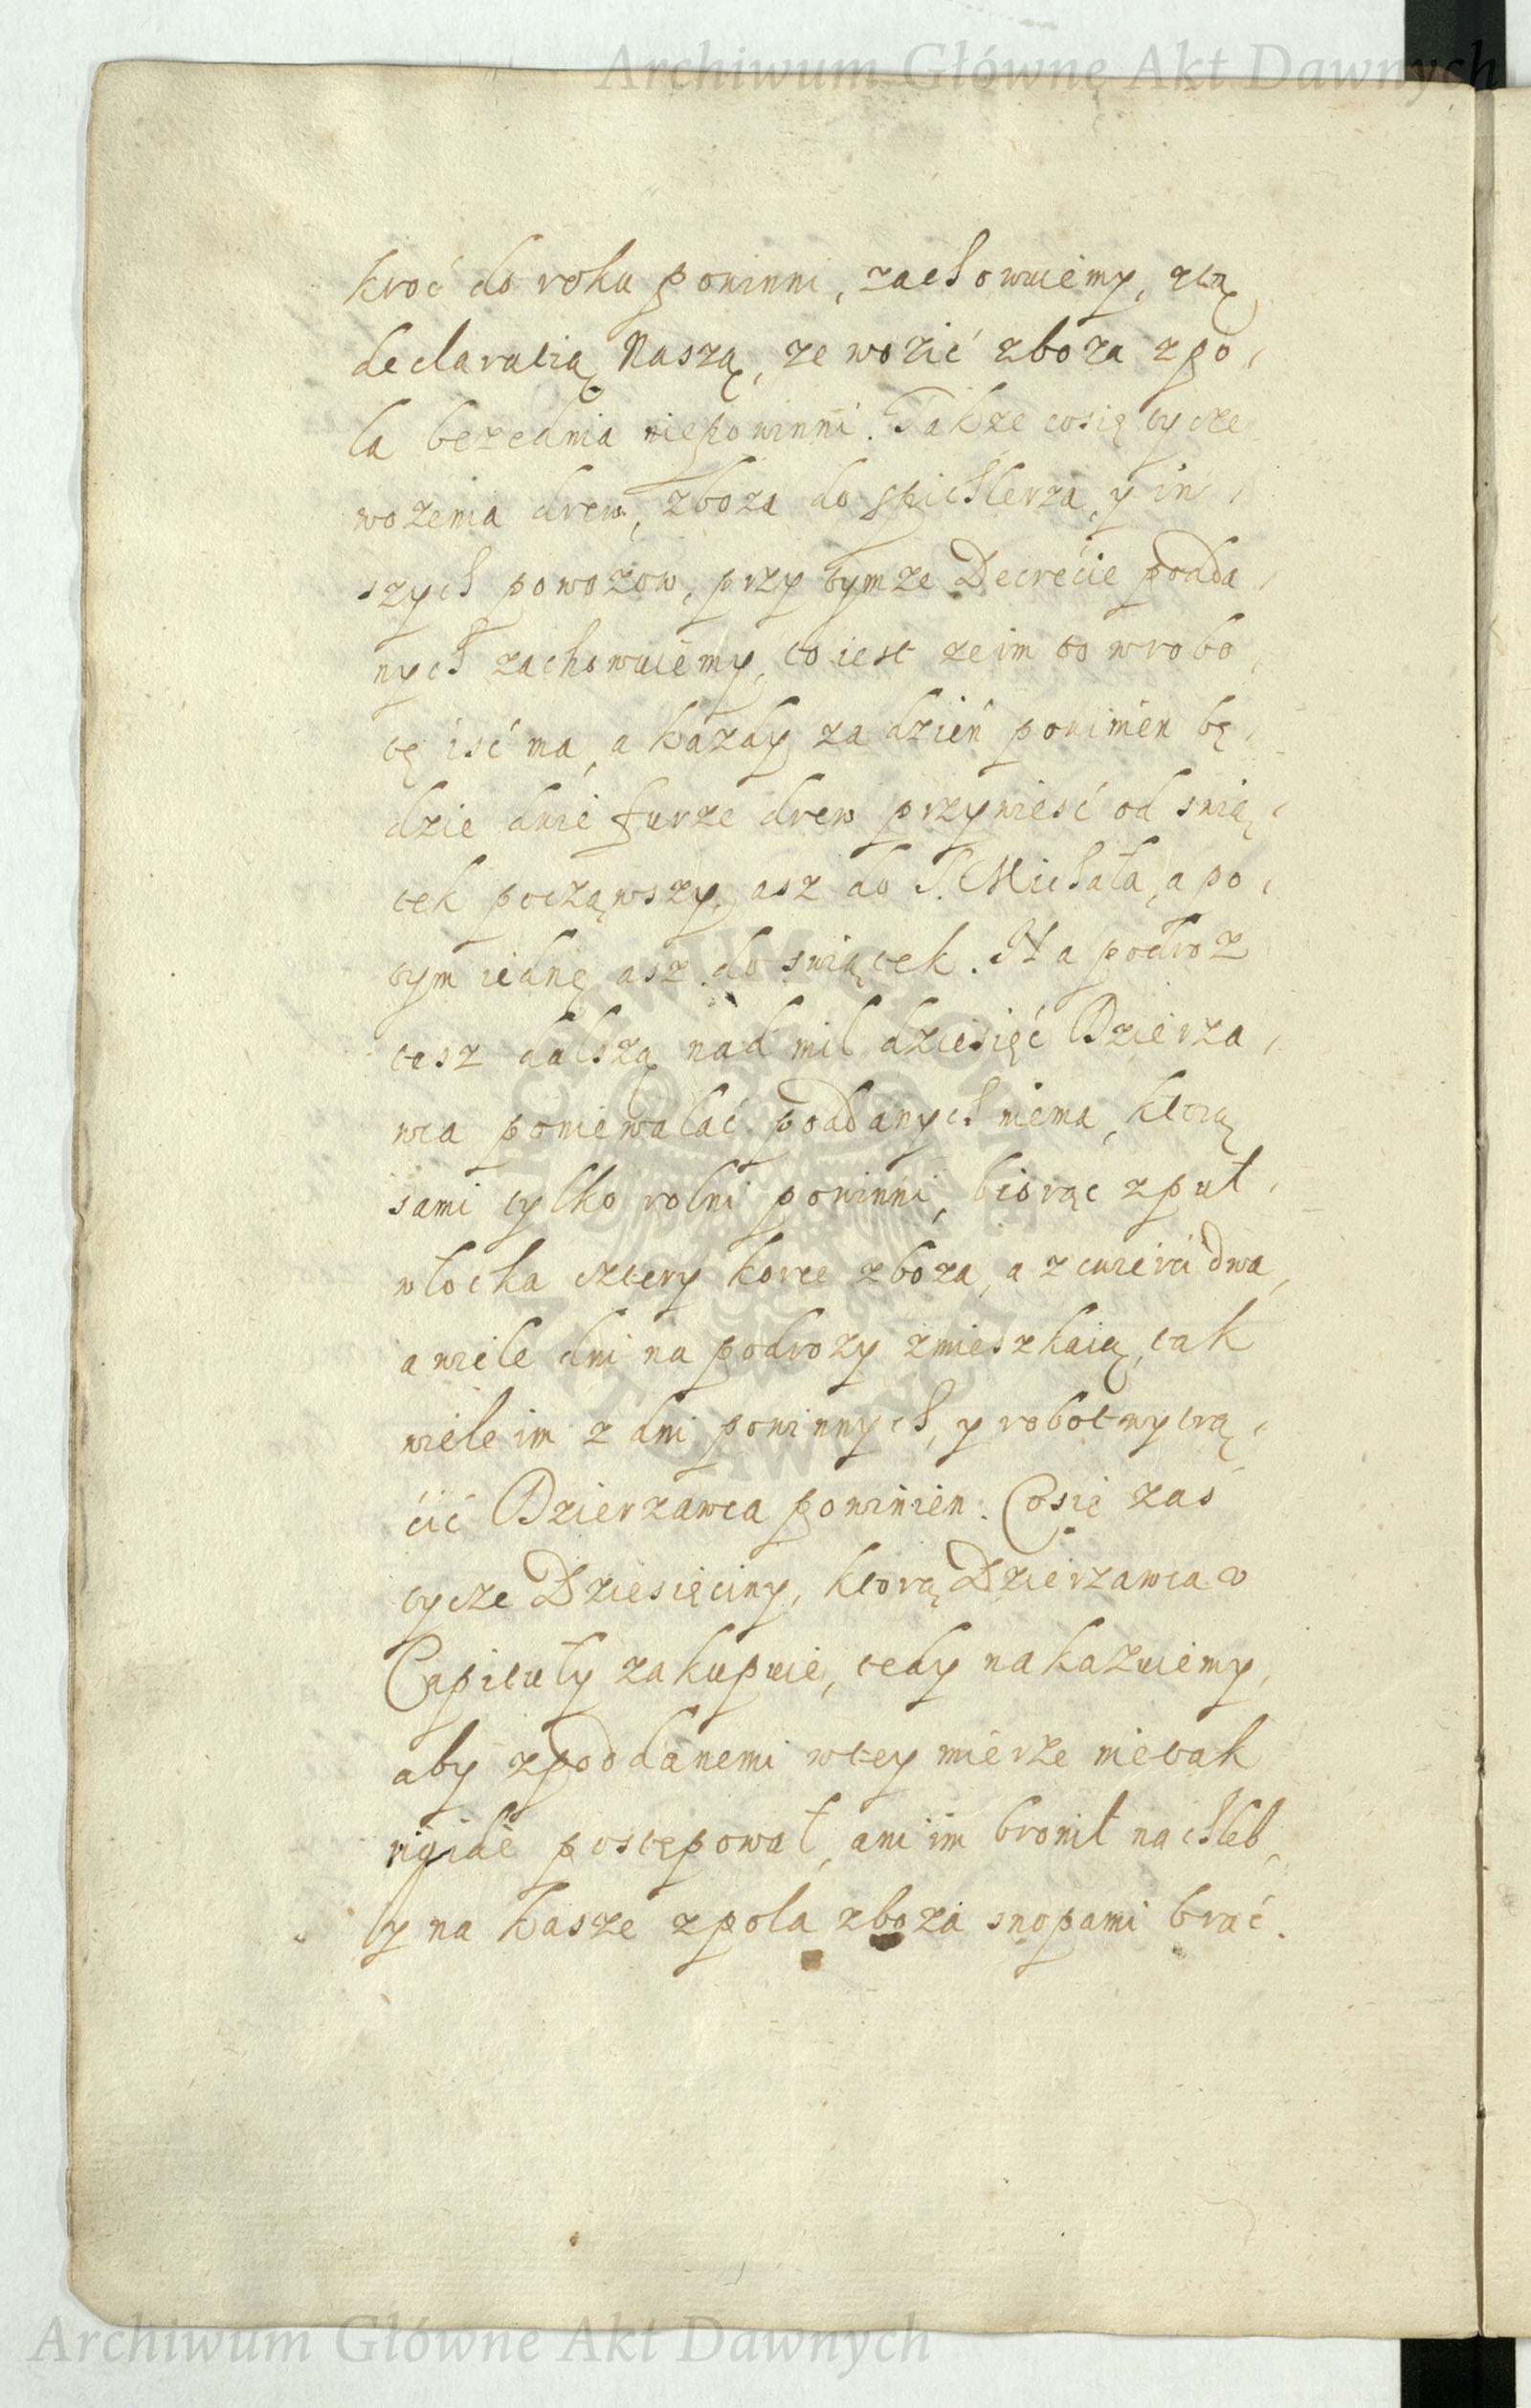 Archiwum Główne Akt Dawnych
kroć do roku powinni, zachowuiemy, z tą
declaratią Naszą, ze wozić zboza z po-
la bezednia niepowinni. Takze cosię tycze
wozenia drew, zboza do spichlerza, y in-
szych powozow, przy tymze Decrećie podda-
nych zachowuiemy, to iest ze im to w robo-
tę iść ma, a kazdy za dzień powinien bę-
dzie dwie furze drew przywieść od swią-
tek począwszy, asz do S. Michała, a po-
tym iednę asz do swiątek. Na podroz
tesz dalszą nad mil dziesięć Dzierza-
wca poniewalać poddanych niema, ktorą
sami tylko rolni powinni, biorąc z puł-
włocka cztery korce zboza, a z cwierci dwa,
a wiele dni na podrozy zmieszkaią, tak
wiele im z dni powinnych, y robotny trą-
cić Dzierzawca powinien. Cosię zas
tycze Dziesięciny, ktorą Dzierzawca v
Capituły zakupuie, tedy nakazuiemy,
aby z poddanemi w tey mierze nietak
rigidè postępował, ani im bronił na chleb,
y na kasze z pola zboza snopami brać.
Archiwum Główne Akt Dawnych